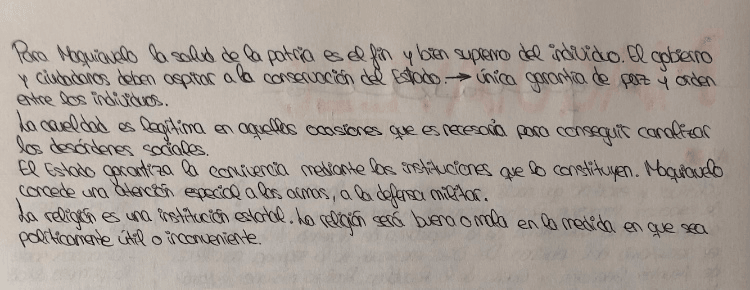 Para Maquiavelo la salud de la patria es el fin y bien supremo del individuo. El gobierno
y ciudadanos deben aspirar a la conservación del Estado. → única garantía de paz y orden
entre los individuos.
La crueldad es legítima en aquellas ocasiones que es necesaria para conseguir canalizar
los desórdenes sociales.
El Estado garantiza la convivencia mediante las instituciones que lo constituyen. Maquiavelo
concede una atención especial a las armas, a la defensa militar.
La religión es una institución estatal. La religión será buena o mala en la medida en que sea
políticamente útil o inconveniente.